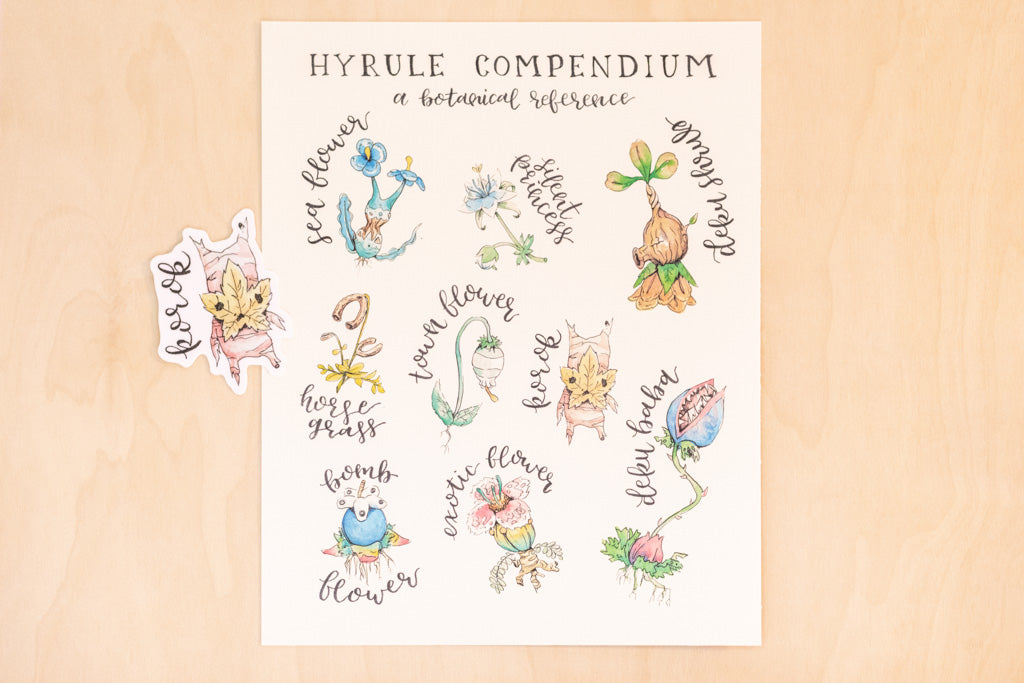 HYRULE COMPENDIUM
a botanical reference
sea flower
silent
princess
deku shrub
korok
horse
grass
town flower
korok
deku baba
bomb
flower
exotic flower